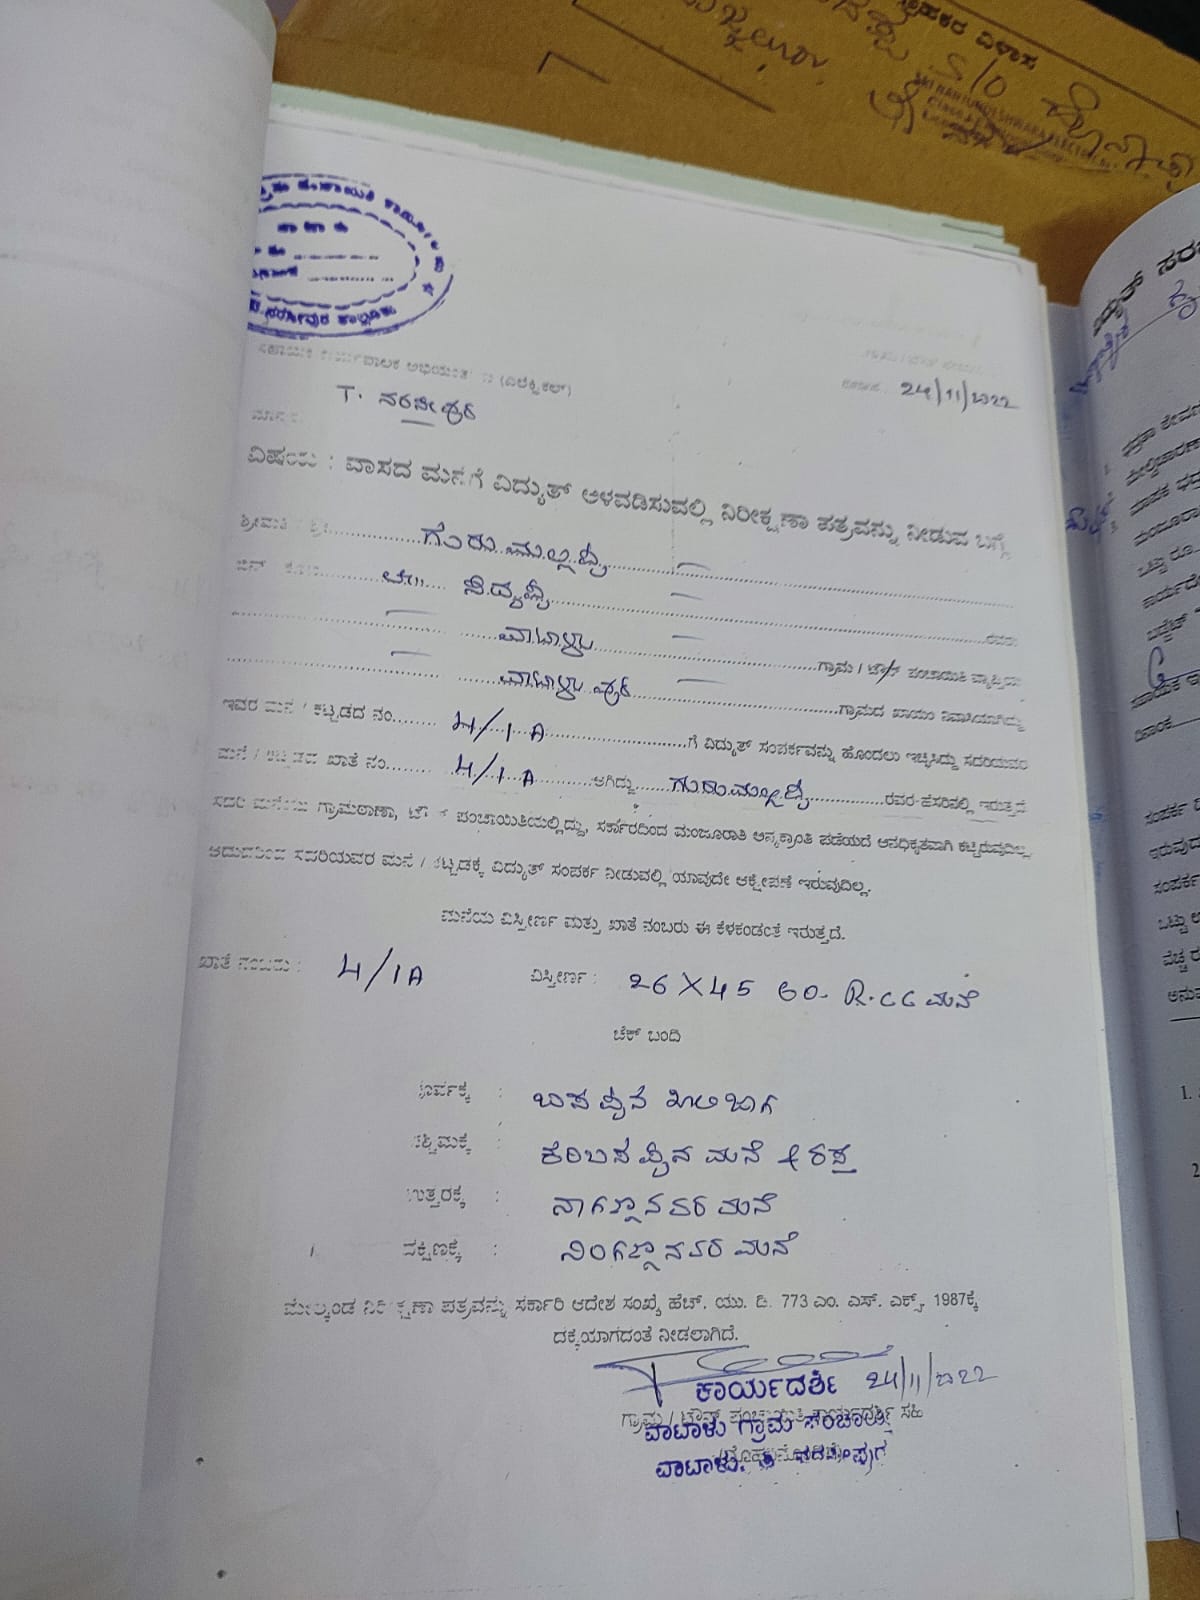 ವಿಳಾಸ
S/O
ಗ್ರಾಮ ಪಂಚಾಯಿತಿ ಕಾರ್ಯಾಲಯ
ನರಸೀಪುರ ತಾಲ್ಲೂಕು
ಸಹಾಯಕ ಕಾರ್ಯಪಾಲಕ ಅಭಿಯಂತರರು (ಎಲೆಕ್ಟ್ರಿಕಲ್)
T. ನರಸೀಪುರ
ದಿನಾಂಕ : 24/11/2022
ಮಾನ್ಯರೇ,
ವಿಷಯ : ವಾಸದ ಮನೆಗೆ ವಿದ್ಯುತ್ ಅಳವಡಿಸುವಲ್ಲಿ ನಿರೀಕ್ಷಣಾ ಪತ್ರವನ್ನು ನೀಡುವ ಬಗ್ಗೆ
ಶ್ರೀಮತಿ / ಶ್ರೀ ಗುರುಮಲ್ಲಪ್ಪ
ಬಿನ್ ಸಿದ್ದಪ್ಪ ರವರು
ವಾಟಾಳು ಗ್ರಾಮ / ಟೌನ್ ಪಂಚಾಯಿತಿ ವ್ಯಾಪ್ತಿಯ
ವಾಟಾಳು ಪುರ ಗ್ರಾಮದ ಖಾಯಂ ನಿವಾಸಿಯಾಗಿದ್ದು
ಇವರ ಮನೆ / ಕಟ್ಟಡದ ನಂ. 4/1A ಗೆ ವಿದ್ಯುತ್ ಸಂಪರ್ಕವನ್ನು ಹೊಂದಲು ಇಚ್ಛಿಸಿದ್ದು ಸದರಿಯವರ
ಮನೆ / ಕಟ್ಟಡದ ಖಾತೆ ನಂ. 4/1A ಆಗಿದ್ದು ಗುರುಮಲ್ಲಪ್ಪ ರವರ ಹೆಸರಿನಲ್ಲಿ ಇರುತ್ತದೆ
ಸದರಿ ಮನೆಯು ಗ್ರಾಮಠಾಣಾ, ಟೌನ್ ಪಂಚಾಯಿತಿಯಲ್ಲಿದ್ದು, ಸರ್ಕಾರದಿಂದ ಮಂಜೂರಾತಿ ಅನ್ಯಕ್ರಾಂತಿ ಪಡೆಯದೆ ಅನಧಿಕೃತವಾಗಿ ಕಟ್ಟಿರುವುದಿಲ್ಲ.
ಆದುದರಿಂದ ಸದರಿಯವರ ಮನೆ / ಕಟ್ಟಡಕ್ಕೆ ವಿದ್ಯುತ್ ಸಂಪರ್ಕ ನೀಡುವಲ್ಲಿ ಯಾವುದೇ ಆಕ್ಷೇಪಣೆ ಇರುವುದಿಲ್ಲ.
ಮನೆಯ ವಿಸ್ತೀರ್ಣ ಮತ್ತು ಖಾತೆ ನಂಬರು ಈ ಕೆಳಕಂಡಂತೆ ಇರುತ್ತದೆ.
ಖಾತೆ ನಂಬರು : 4/1A ವಿಸ್ತೀರ್ಣ : 26X45 ಅಡಿ R.CC ಮನೆ
ಚೆಕ್ ಬಂದಿ
ಪೂರ್ವಕ್ಕೆ : ಬಸಪ್ಪನ ಖಾಲಿ ಜಾಗ
ಪಶ್ಚಿಮಕ್ಕೆ : ಕೆಂಬಸಪ್ಪನ ಮನೆ & ರಸ್ತೆ
ಉತ್ತರಕ್ಕೆ : ನಾಗಣ್ಣನವರ ಮನೆ
ದಕ್ಷಿಣಕ್ಕೆ : ನಿಂಗಣ್ಣನವರ ಮನೆ
ಮೇಲ್ಕಂಡ ನಿರೀಕ್ಷಣಾ ಪತ್ರವನ್ನು ಸರ್ಕಾರಿ ಆದೇಶ ಸಂಖ್ಯೆ ಹೆಚ್. ಯು. ಡಿ. 773 ಎಂ. ಎಸ್. ಎಕ್ಸ್. 1987ಕ್ಕೆ
ದಕ್ಕೆಯಾಗದಂತೆ ನೀಡಲಾಗಿದೆ.
ಕಾರ್ಯದರ್ಶಿ 24/11/2022
ಗ್ರಾಮ / ಟೌನ್ ಪಂಚಾಯಿತಿ ಕಾರ್ಯದರ್ಶಿ ಸಹಿ
ವಾಟಾಳು ಗ್ರಾಮ ಪಂಚಾಯಿತಿ
ವಾಟಾಳು, ತಿ ನರಸೀಪುರ
ವಿದ್ಯುತ್ ಸರ
ಮಂಜೂರಾ
ಒಟ್ಟು ರೂ.
ದಿನಾಂಕ
ಸಂಪರ್ಕ
ಇರುವುದ
ಸಂಪರ್ಕ
ಒಟ್ಟು
ವೆಚ್ಚ
1.
2.